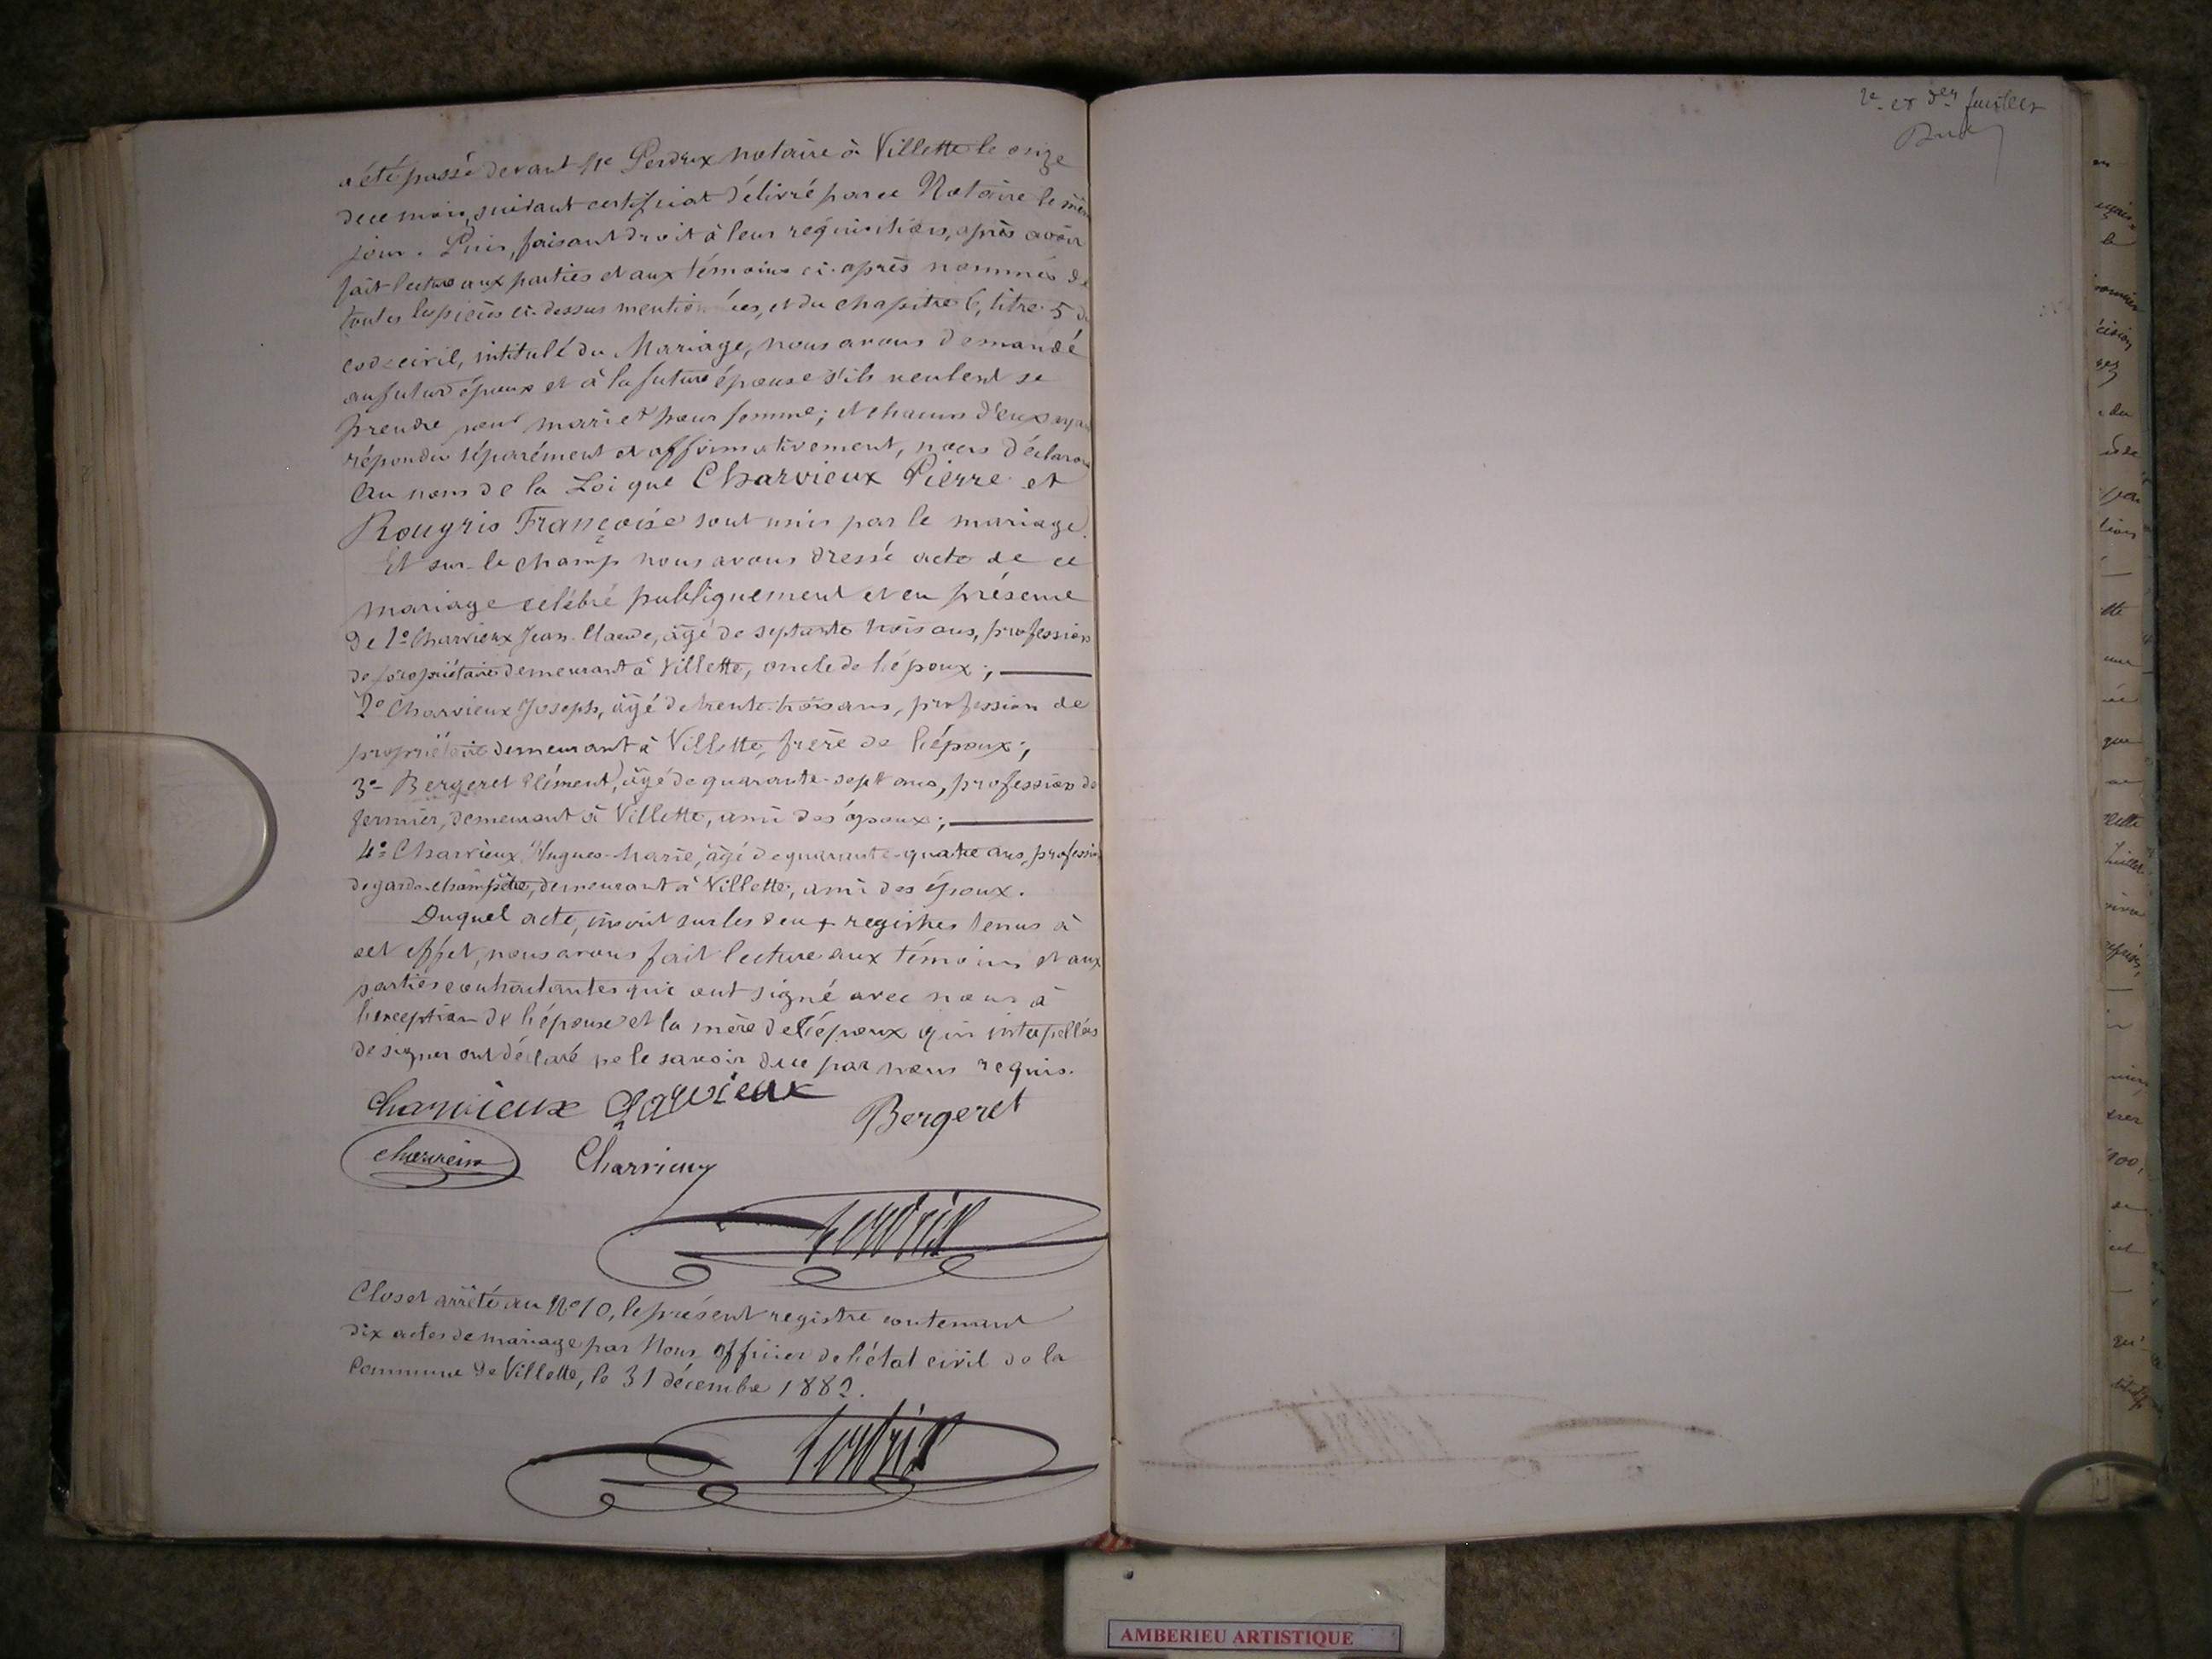 a été passé devant Me Perdrix notaire à Villette le onze
de ce mois, suivant certificat délivré par ce Notaire le mêm
jour. Puis, faisant droit à leur réquisition, après avoir
fait lecture aux parties et aux témoins ci-après nommés de
toutes les pièces ci-dessus mentionnées, et du chapitre 6, titre 5 du
code civil, intitulé du Mariage, nous avons demandé
au futur époux et à la future épouse s'ils veulent se
prendre pour mari et pour femme; et chacun d'eux ayan
répondu séparément et affirmativement, nous déclaron
au nom de la Loi que Charvieux Pierre et
Rougris Françoise sont unis par le mariage.
Et sur-le champ nous avons dressé acte de ce
mariage célébré publiquement et en présence
de 1º Charvieux Jean-Claude, âgé de septante trois ans, profession
de propriétaire demeurant à Villette, oncle de l'époux;
2º Charvieux Joseph, âgé de trente-trois ans, profession de
propriétaire demeurant à Villette, frère de l'époux;
3º Bergeret Clément, âgé de quarante-sept ans, profession de
fermier, demeurant à Villette, ami des époux;
4º Charvieux Hugues-Marie, âgé de quarante-quatre ans, profession
de garde-champêtre, demeurant à Villette, ami des époux.
Duquel acte, inscrit sur les deux registres tenus à
cet effet, nous avons fait lecture aux témoins et aux
parties contractantes qui ont signé avec nous à
l'exception de l'épouse et la mère de l'époux qui interpellées
de signer ont déclaré ne le savoir de ce par nous requis.
Charvieux Charvieux Bergeret
charvieux Charvieux
Perdrix
Clos et arrêté au Nº 10, le présent registre contenant
dix actes de mariage par Nous officier de l'état civil de la
Commune de Villette, le 31 décembre 1882.
Perdrix
2e et der feuillet
AMBERIEU ARTISTIQUE